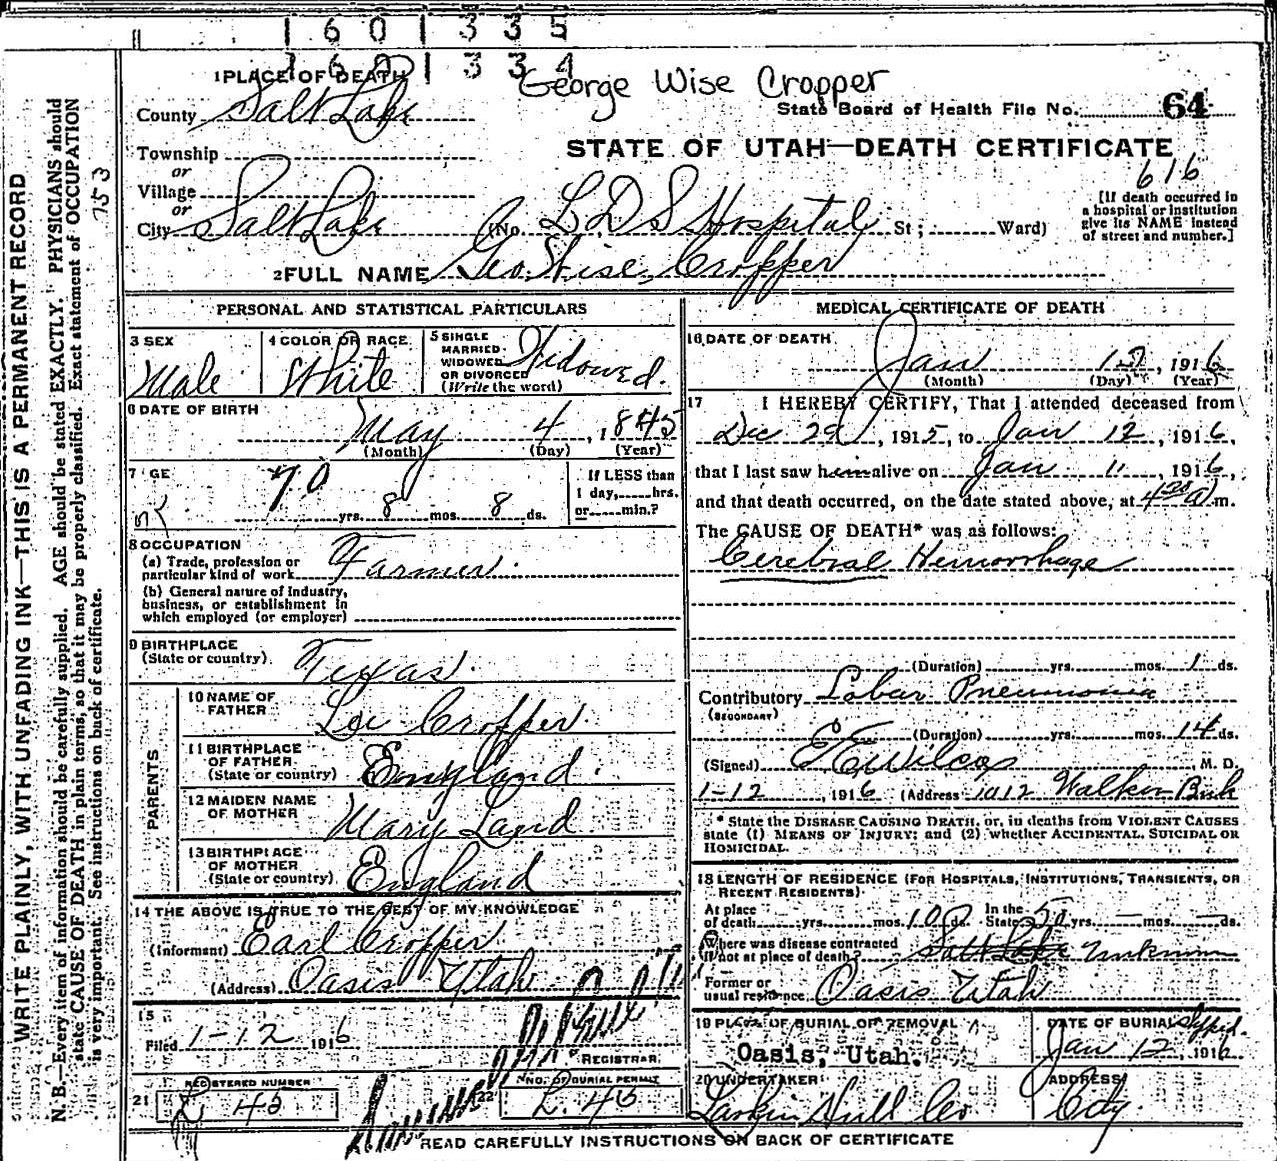 1601335
1601334
George Wise Cropper
1 PLACE OF DEATH
County Salt Lake
State Board of Health File No. 64
Township
or
STATE OF UTAH—DEATH CERTIFICATE
616
Village
or
City Salt Lake (No. L D S Hospital St; Ward)
[If death occurred in a hospital or institution give its NAME instead of street and number.]
2 FULL NAME Geo. Wise Cropper
PERSONAL AND STATISTICAL PARTICULARS
3 SEX Male
4 COLOR OR RACE White
5 SINGLE MARRIED WIDOWED OR DIVORCED (Write the word) Widowed.
6 DATE OF BIRTH
May 4, 1845
(Month) (Day) (Year)
7 AGE
70 yrs. 8 mos. 8 ds.
If LESS than 1 day, hrs. or min.?
8 OCCUPATION
(a) Trade, profession or particular kind of work Farmer.
(b) General nature of Industry, business, or establishment in which employed (or employer)
9 BIRTHPLACE (State or country) Texas.
PARENTS
10 NAME OF FATHER Lee Cropper.
11 BIRTHPLACE OF FATHER (State or country) England.
12 MAIDEN NAME OF MOTHER Mary Land
13 BIRTHPLACE OF MOTHER (State or country) England
14 THE ABOVE IS TRUE TO THE BEST OF MY KNOWLEDGE
(Informant) Earl Cropper
(Address) Oasis Utah
15
Filed 1-12 1916
REGISTRAR
21 REGISTERED NUMBER L 45
22 NO. OF BURIAL PERMIT L. 45
MEDICAL CERTIFICATE OF DEATH
16 DATE OF DEATH
Jan 12, 1916
(Month) (Day) (Year)
17 I HEREBY CERTIFY, That I attended deceased from
Dec 29, 1915, to Jan 12, 1916,
that I last saw him alive on Jan 11, 1916,
and that death occurred, on the date stated above, at 4 30 a m.
The CAUSE OF DEATH* was as follows:
Cerebral Hemorrhage
(Duration) yrs. mos. 1 ds.
Contributory Lobar Pneumonia
(SECONDARY)
(Duration) yrs. mos. 14 ds.
(Signed) E E Wilcox M. D.
1-12, 1916 (Address 1012 Walker Bnk
* State the DISEASE CAUSING DEATH, or, in deaths from VIOLENT CAUSES
state (1) MEANS OF INJURY; and (2) whether ACCIDENTAL, SUICIDAL OR
HOMICIDAL.
18 LENGTH OF RESIDENCE (FOR HOSPITALS, INSTITUTIONS, TRANSIENTS, OR RECENT RESIDENTS)
At place of death yrs. mos. ds. In the State 50 yrs. — mos. — ds.
Where was disease contracted if not at place of death? Salt Lake Unknown
Former or usual residence Oasis Utah
19 PLACE OF BURIAL OR REMOVAL
Oasis, Utah.
DATE OF BURIAL Shpd.
Jan 12, 1916
20 UNDERTAKER
Larkin Hull Co
ADDRESS
City.
READ CAREFULLY INSTRUCTIONS ON BACK OF CERTIFICATE
WRITE PLAINLY, WITH UNFADING INK—THIS IS A PERMANENT RECORD
N. B.—Every item of information should be carefully supplied. AGE should be stated EXACTLY. PHYSICIANS should
state CAUSE OF DEATH in plain terms, so that it may be properly classified. Exact statement of OCCUPATION
is very important. See instructions on back of certificate.
753